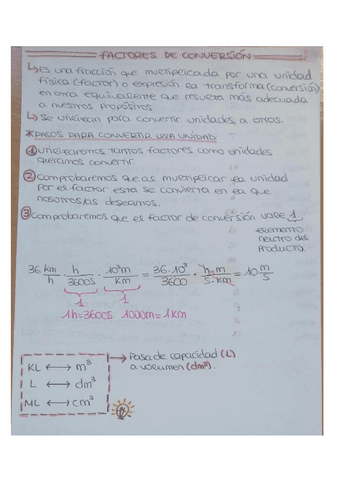 FACTORES DE CONVERSIÓN
↳ Es una fracción que multiplicada por una unidad
física (factor) o expresión la transforma (conversión)
en otra equivalente que resulta más adecuada
a nuestros propósitos.
↳ Se utilizan para convertir unidades a otras.
*PASOS PARA CONVERTIR UNA UNIDAD:
① Utilizaremos tantos factores como unidades
queramos convertir.
② Comprobaremos que al multiplicar la unidad
por el factor esta se convierta en la que
nosotros/as deseamos.
③ Comprobaremos que el factor de conversión vale 1
elemento
neutro del
producto.
36 km/h · h/3600s · 10³m/km = 36·10³/3600 · h·m/s·km = 10 m/s
1 1
1h=3600s 1000m=1km
KL ⟷ m³
L ⟷ dm³
ML ⟷ cm³
→ Pasa de capacidad (L)
a volumen (dm³).